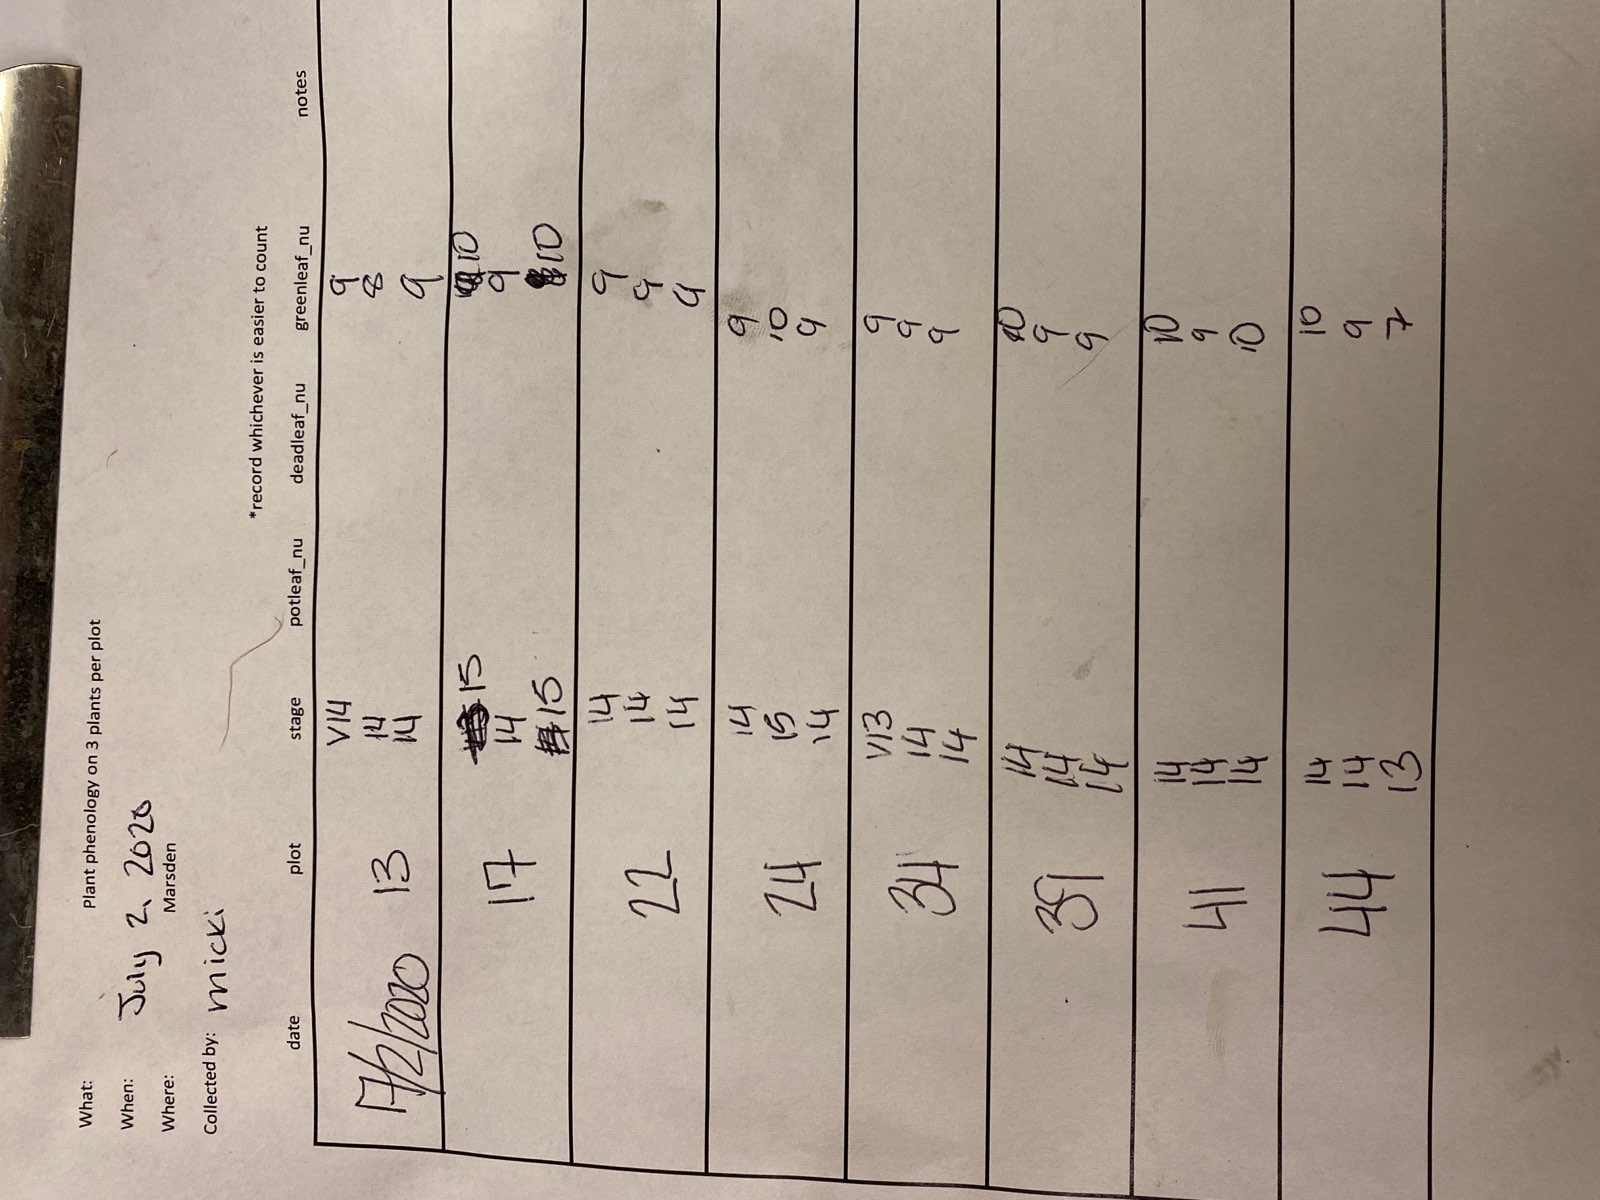 What: Plant phenology on 3 plants per plot
When: July 2, 2020
Where: Marsden
Collected by: micki
*record whichever is easier to count
date plot stage potleaf_nu deadleaf_nu greenleaf_nu notes
V14 9
7/2/2020 13 14 8
14 9
15 10
17 14 9
15 10
14 9
22 14 9
14 9
14 9
24 15 10
14 9
V13 9
34 14 9
14 9
14 10
39 14 9
14 9
14 10
41 14 9
14 10
14 10
44 14 9
13 7